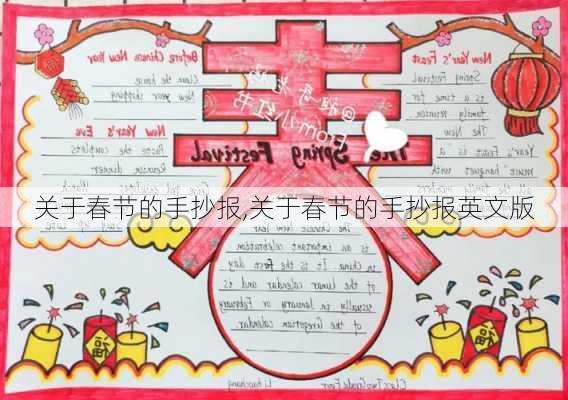 Before Chinese New Year
Clean the house
New year shopping
New Year's Eve
Paste the couplets
Reunion dinner
From小红书
The Spring Festival
New Year's Feast
Spring Festival
is a time for
family reunion
The New
Year's Feast is "a
must" banquet with
all the family members
关于春节的手抄报,关于春节的手抄报英文版
is an important celebration
in China. It is the first day
of the lunar calendar and is
usually in January or February
of the Gregorian calendar.
福
Class Two Grade Four